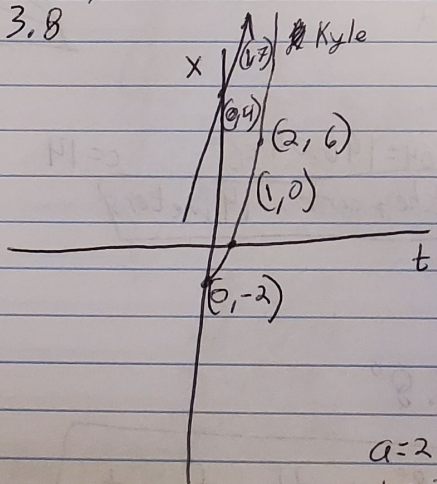 3.8
Kyle
x
(1,7)
(0,4)
(2, 6)
(1, 0)
t
(0,-2)
a=2